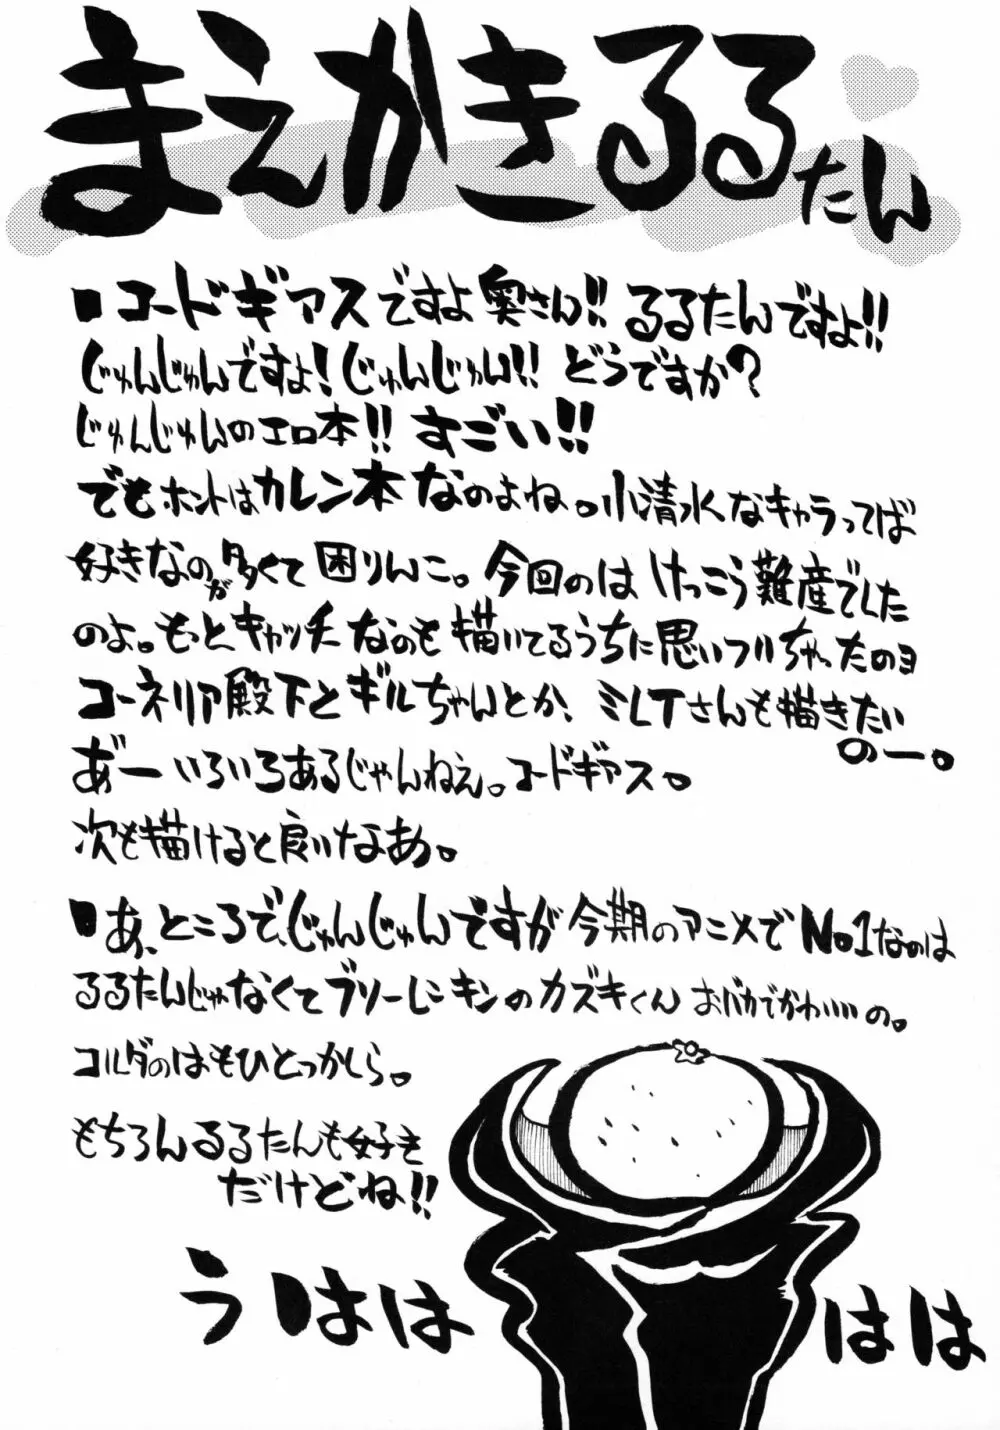 まえがきるるたん
■コードギアスですよ奥さん!! るるたんですよ!!
じゅんじゅんですよ!じゅんじゅん!! どうですか?
じゅんじゅんのエロ本!! すごい!!
でもホントはカレン本なのよね。小清水なキャラってば
好きなのが多くて困りんこ。今回のはけっこう難産でした
のよ。もっとキャッチなのも描いてるうちに思いつりちゃったのヨ
コーネリア殿下とギルちゃんとか、ミレイさんも描きたい
のー。
あ゛ーいろいろあるじゃんねえ。コードギアス。
次も描けると良いなあ。
■あ、ところで、じゅんじゅんですが今期のアニメでNo.1なのは
るるたんじゃなくてブソーレンキンのカズキくん おバカでかわいいの。
コルダのはもひとつかしら。
もちろんるるたんも好き
だけどね!!
うははは
はは